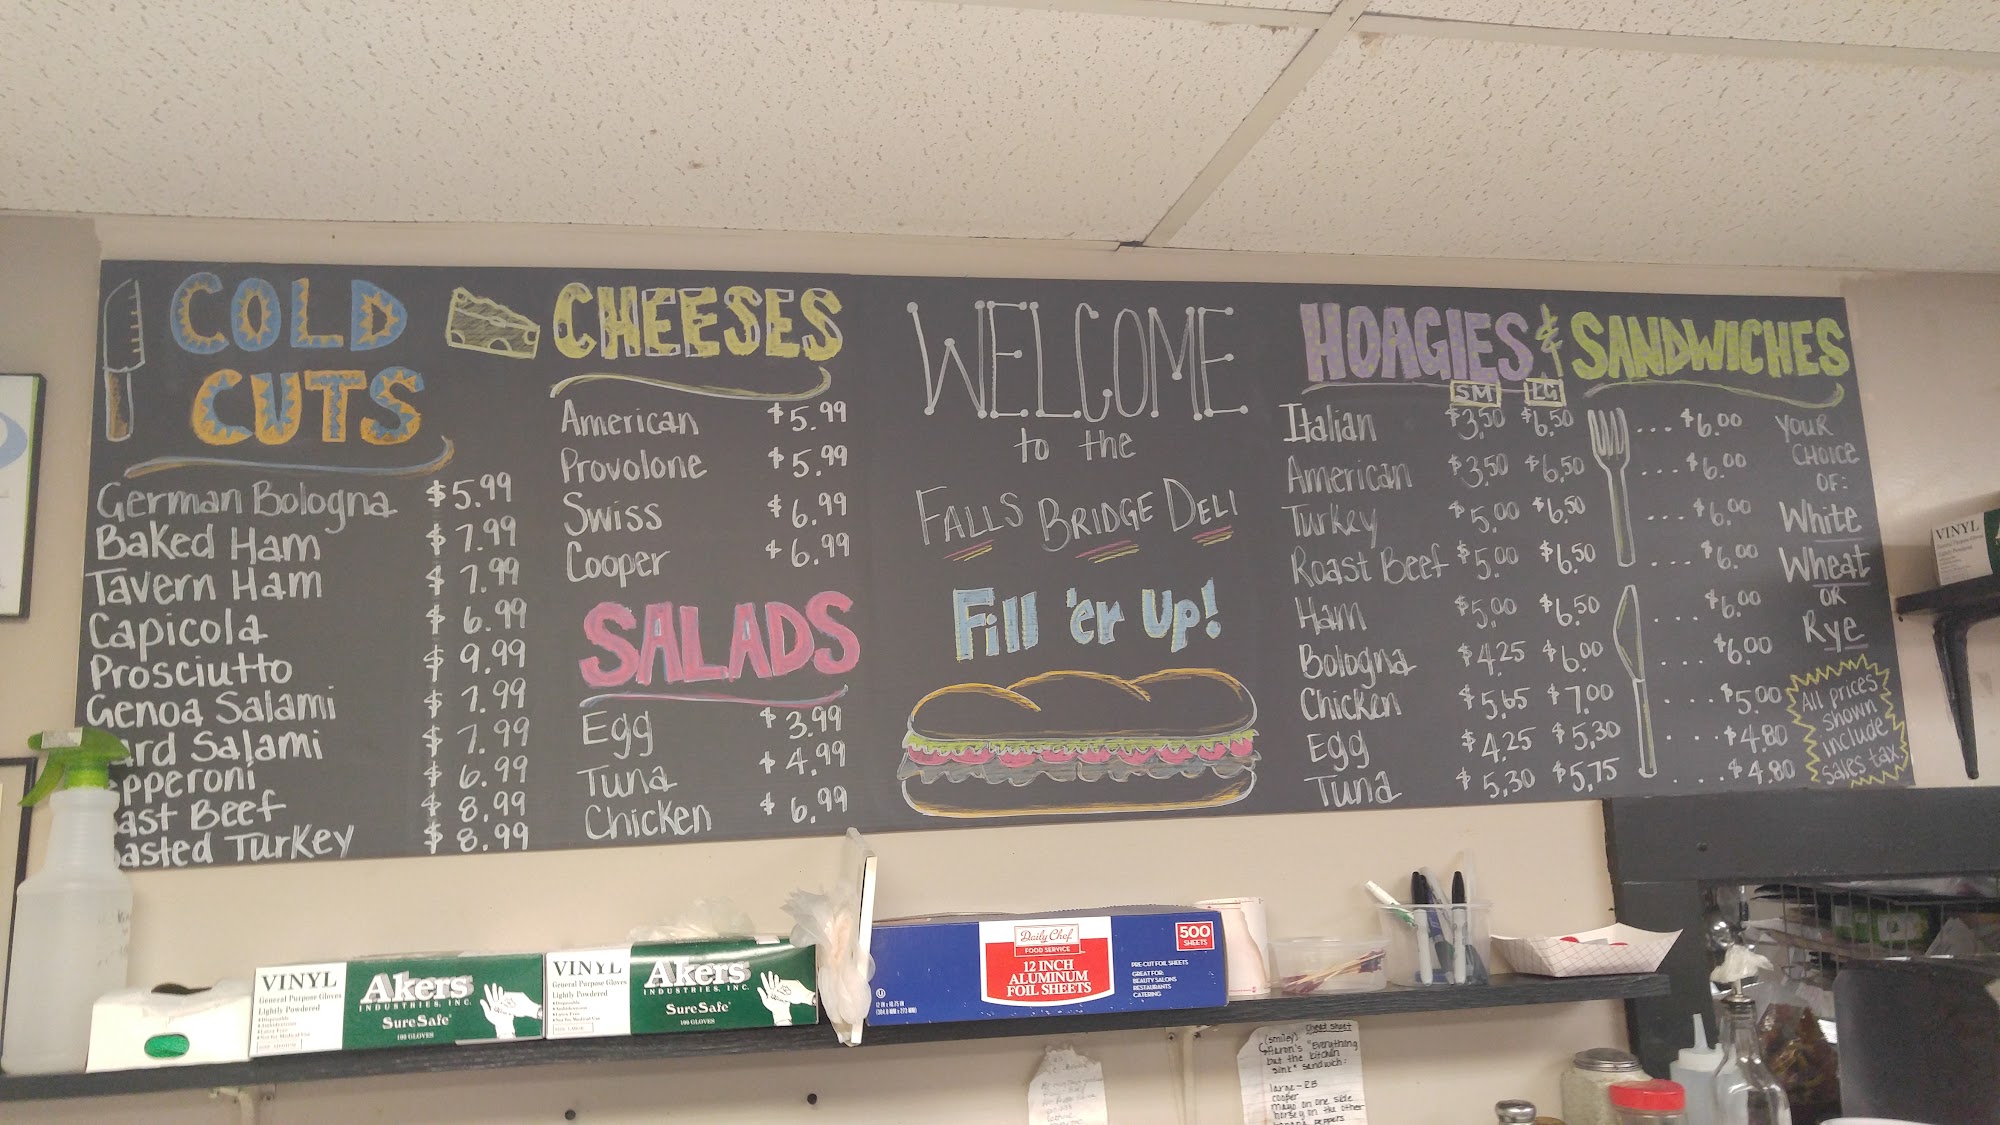 COLD
CUTS
German Bologna $5.99
Baked Ham $7.99
Tavern Ham $7.99
Capicola $6.99
Prosciutto $9.99
Genoa Salami $7.99
ard Salami $7.99
pperoni $6.99
ast Beef $8.99
asted Turkey $8.99
CHEESES
American $5.99
Provolone $5.99
Swiss $6.99
Cooper $6.99
SALADS
Egg $3.99
Tuna $4.99
Chicken $6.99
WELCOME
to the
FALLS BRIDGE DELI
Fill 'er Up!
HOAGIES & SANDWICHES
SM LG
Italian $3.50 $6.50 ... $6.00
American $3.50 $6.50 ... $6.00
Turkey $5.00 $6.50 ... $6.00
Roast Beef $5.00 $6.50 ... $6.00
Ham $5.00 $6.50 ... $6.00
Bologna $4.25 $6.00 ... $6.00
Chicken $5.65 $7.00 ... $5.00
Egg $4.25 $5.30 ... $4.80
Tuna $5.30 $5.75 ... $4.80
YOUR
CHOICE
OF:
White
Wheat
OR
Rye
All prices
shown
include
sales tax.
VINYL
General Purpose Gloves
Lightly Powdered
Akers
INDUSTRIES, INC.
SureSafe
100 GLOVES
VINYL
General Purpose Gloves
Lightly Powdered
Akers
INDUSTRIES, INC.
SureSafe
100 GLOVES
Daily Chef
FOOD SERVICE
12 INCH
ALUMINUM
FOIL SHEETS
500
SHEETS
PRE-CUT FOIL SHEETS
GREAT FOR:
BEAUTY SALONS
RESTAURANTS
CATERING
VINYL
cheat sheet
(smiley)
Aaron's "Everything
but the kitchen
sink" sandwich:
large - RB
cooper
mayo on one side
horsey on the other
peppers